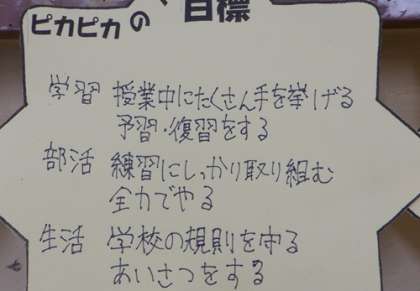 ピカピカの 目標
学習 授業中にたくさん手を挙げる
予習・復習をする
部活 練習にしっかり取り組む
全力でやる
生活 学校の規則を守る
あいさつをする